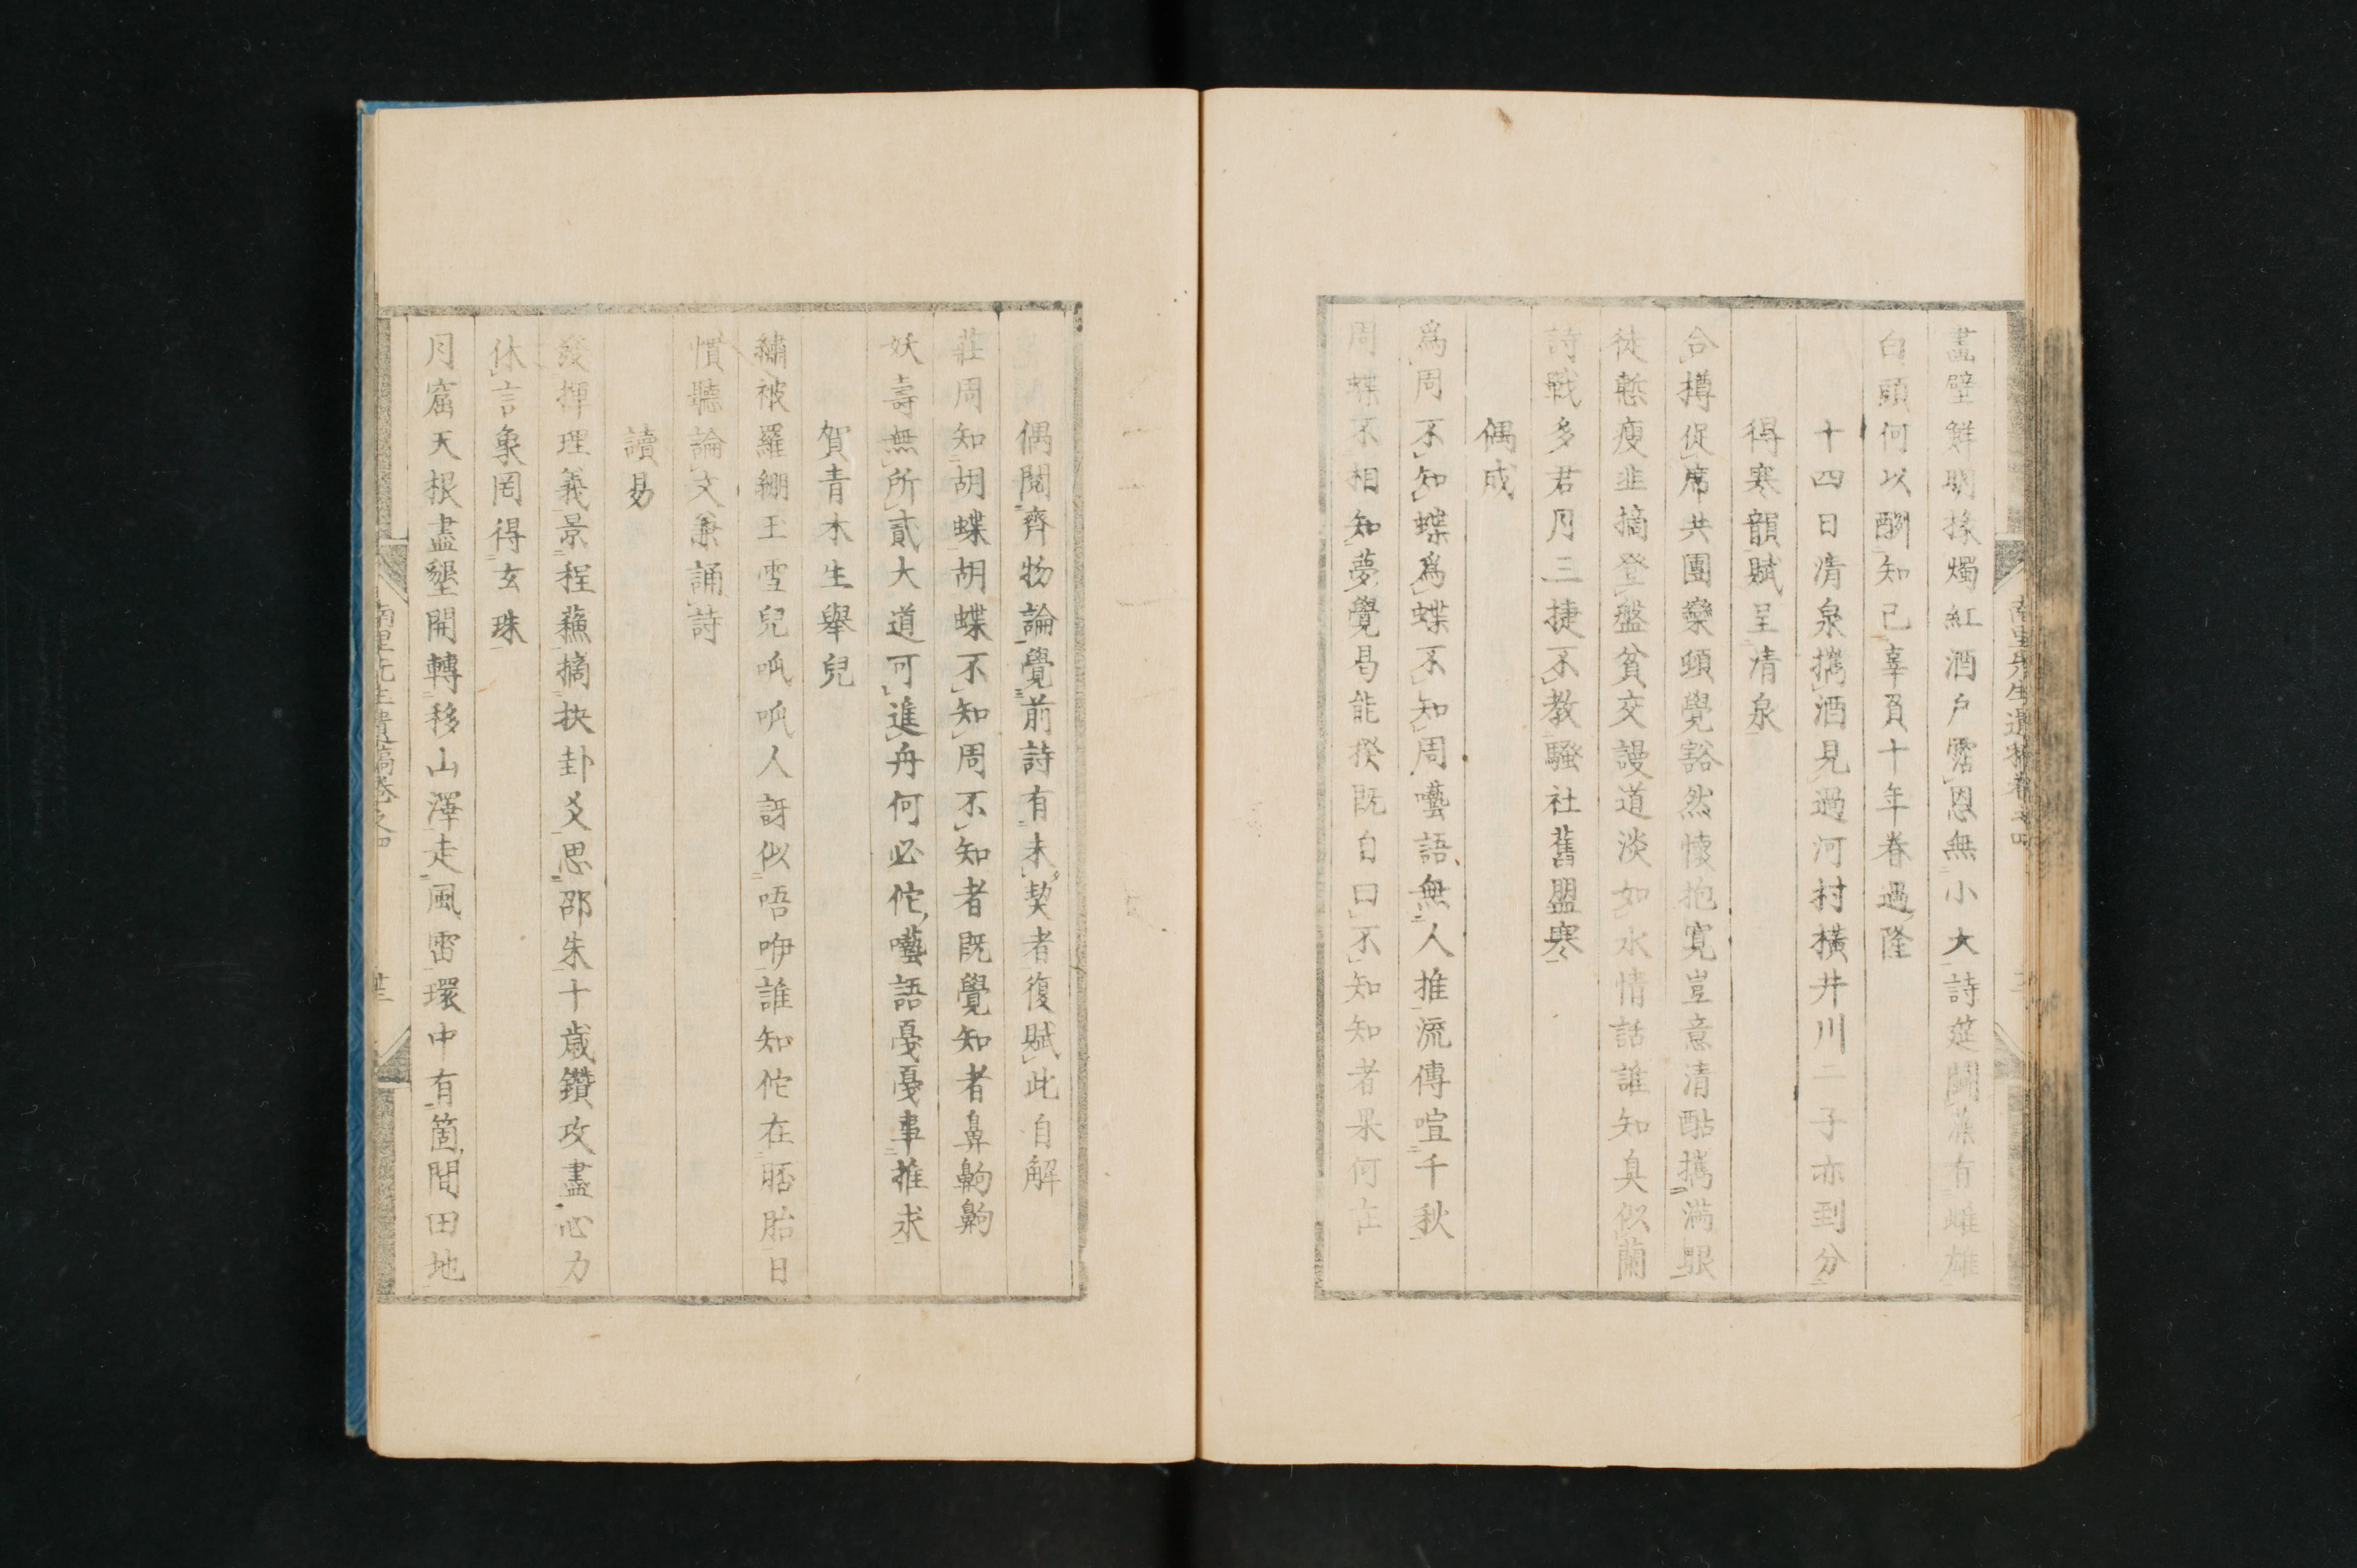 畵壁鮮明椽燭紅酒戶霑恩無小大詩筵鬪藻有雌雄
白頭何以酬知己辜負十年眷遇隆
十四日清泉攜酒見過河村橫井川二子亦到分
得寒韻賦呈清泉
合樽促席共團欒頓覺豁然懷抱寬豈意清酤攜滿眼
徒慙瘦韭摘登盤貧交謾道淡如水情話誰知臭似蘭
詩戰多君月三捷不教騷社舊盟寒
偶成
爲周不知蝶爲蝶不知周囈語無人推流傳喧千秋
周蝶不相知夢覺曷能揆既自曰不知知者果何在
偶閱齊物論覺前詩有未契者復賦此自解
莊周知胡蝶胡蝶不知周不知者既覺知者鼻齁齁
妖壽無所貳大道可進舟何必佗囈語戞戞事推求
賀青木生舉兒
繡被羅綳玉雪兒呱呱人訝似唔咿誰知佗在胚胎日
慣聽論文兼誦詩
讀易
發揮理義景程蘓摘抉卦爻思邵朱十歳鑽攻盡心力
休言象罔得玄珠
月窟天根盡墾開轉移山澤走風雷環中有箇閒田地
南里先生遺稿卷之四